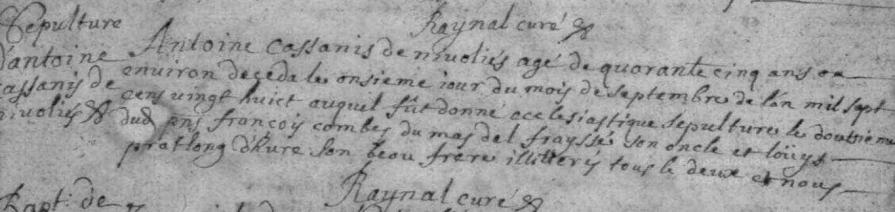 Raynal curé
Sepulture
d'antoine
cassanis de
nivoliés
Antoine cassanis de nivoliés agé de quorante cinq ans ou
environ deceda le onsieme iour du mois de septembre de l'an mil sept
cens vingt huict auquil fût donné ecclesiastique sepulture le dousieme
dud pnt françois combes du mas del fraysse son oncle et loüys
pratlong d'hure son beou frere illitteres tous le deux et nous
Raynal curé
Bapt. de